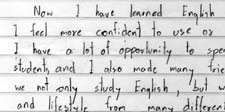 Now I have learned English
I feel more confident to use or
I have a lot of opportunity to spe
students, and I also made many frie
we not only study English, but w
and lifestyle from many differen